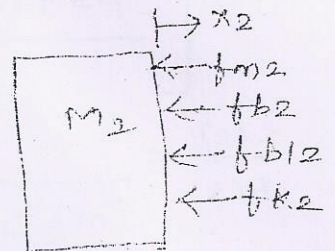 x2
fm2
M2
fb2
fb12
fk2